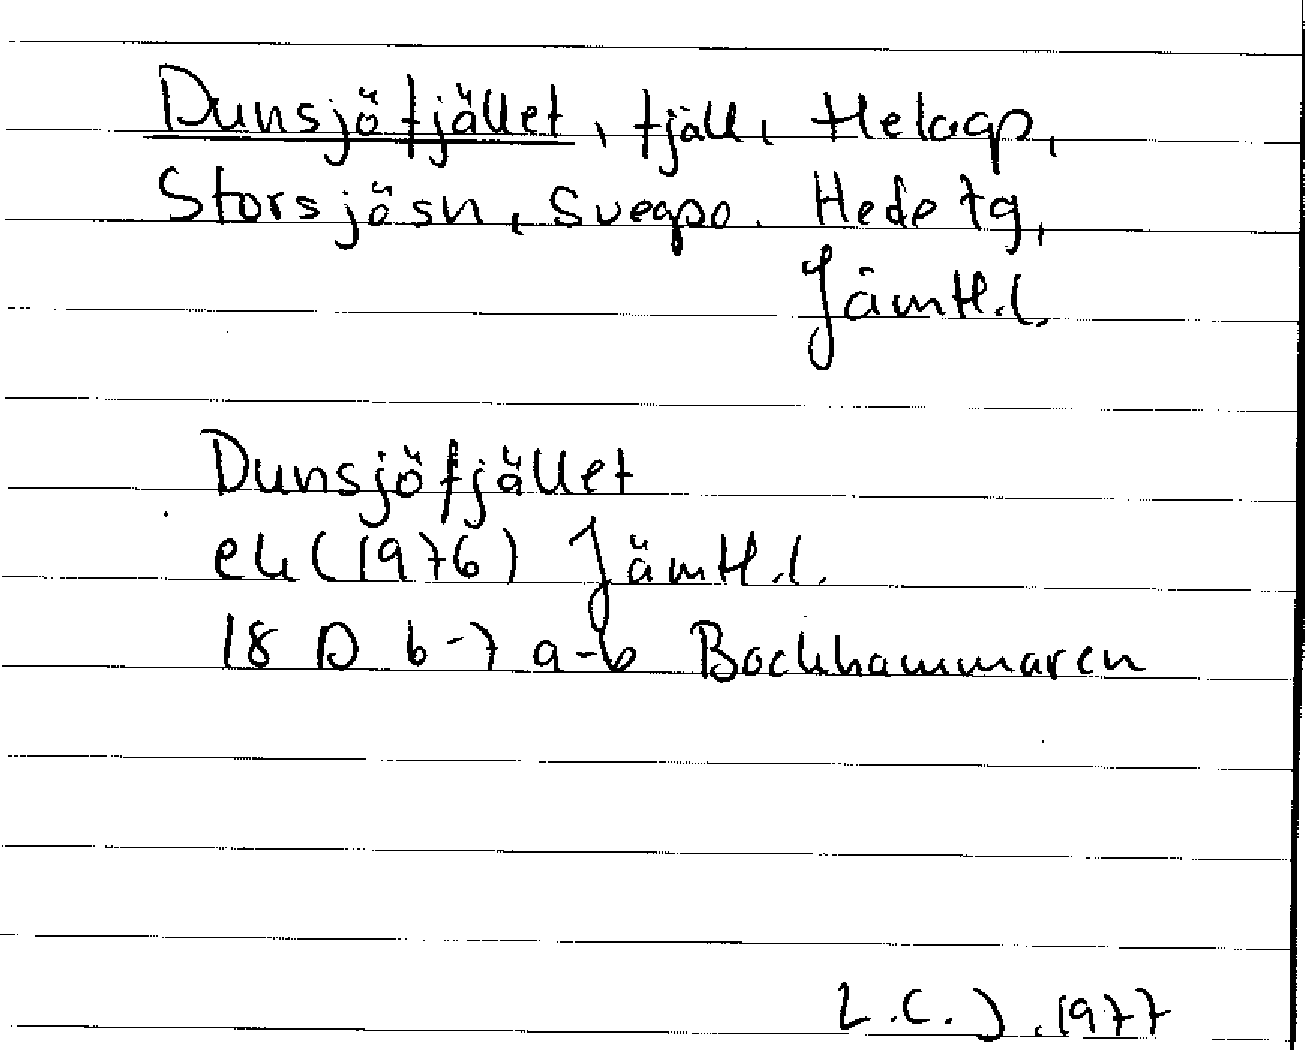 Dunsjöfjället, fjäll, Helagp,
Storsjösn, Svegpo. Hede tg,
Jämtl.l.
Dunsjöfjället
ek (1976) Jämtl.l.
18 D 6-7 a-b Bockhammaren
L.C.J. 1977